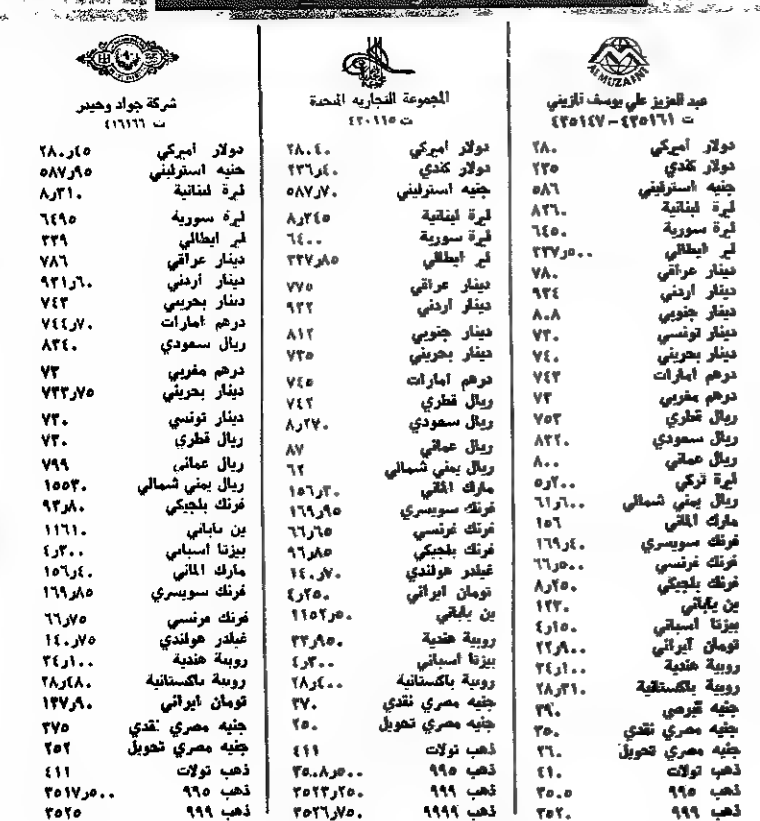 ALMUZAINI
عبد العزيز علي يوسف
ت ٤٣٥١٦١ – ٤٣٥١٤٧
دولار أميركي ٢٨٠
دولار كندي ٢٣٥
جنيه استرليني ٥٨٦
ليرة لبنانية ٨٣٦٠
ليرة سورية ٦٤٥٠
لير ايطالي ٢٣٧٫٥٠٠
دينار عراقي ٧٨٠
دينار اردني ٩٣٤
دينار جنوبي ٨٠٨
دينار تونسي ٧٣٠
دينار بحريني ٧٤٠
درهم امارات ٧٤٣
درهم مغربي ٧٣
ريال قطري ٧٥٣
ريال سعودي ٨٣٢٠
ريال عماني ٨٠٠
ليرة تركي ٥٫٢٠٠
ريال يمني شمالي ٦١٫٦٠٠
مارك الماني ١٥٦
فرنك سويسري ١٦٩٫٤٠
فرنك فرنسي ٦٦٫٥٠٠
فرنك بلجيكي ٨٫٢٥٠
ين ياباني ١٢٣٠
بيزتا أسباني ٤٫١٥٠
تومان ايراني ٢٢٫٩٠٠
روبية هندية ٣٤٫١٠٠
روبية باكستانية ٢٨٫٣١٠
جنيه قبرصي ٣٩٠
جنيه مصري نقدي ٣٥٠
جنيه مصري تحويل ٢٦٠
ذهب تولات ٤١٠
ذهب ٩٩٥ ٣٥٠٥
ذهب ٩٩٩ ٣٥٢٠
المجموعة التجاريه المتحدة
ت ٤٣٠١١٥
دولار اميركي ٢٨٠٤٠
دولار كندي ٢٣٦٫٤٠
جنيه استرليني ٥٨٧٫٧٠
ليرة لبنانية ٨٫٣٤٥
ليرة سورية ٦٤٠٠
لير ايطالي ٢٣٧٫٨٥
دينار عراقي ٧٧٥
دينار أردني ٩٣٢
دينار جنوبي ٨١٢
دينار بحريني ٧٣٥
درهم امارات ٧٤٥
ريال قطري ٧٤٢
ريال سعودي ٨٫٢٧٠
ريال عماني ٨٧
ريال يمني شمالي ٦٢
مارك الماني ١٥٦٫٣٠
فرنك سويسري ١٦٩٫٩٥
فرنك فرنسي ٦٦٫٦٥
فرنك بلجيكي ٩٦٫٨٥
غيلدر هولندي ١٤٠٫٧٠
تومان ايراني ٤٫٢٥٠
ين ياباني ١١٥٢٫٥٠
روبية هندية ٣٣٫٩٥٠
بيزتا أسباني ٤٫٣٠٠
روبية باكستانية ٢٨٫٤٠٠
جنيه مصري نقدي ٣٧٠
جنيه مصري تحويل ٢٥٠
ذهب تولات ٤١١
ذهب ٩٩٥ ٣٥٠٨٫٥٠٠
ذهب ٩٩٩ ٣٥٢٣٫٢٥٠
ذهب ٩٩٩٩ ٣٥٢٦٫٧٥٠
شركة جواد وحيدر
ت ٤١٦١٦٦
دولار اميركي ٢٨٠٫٤٥
جنيه استرليني ٥٨٧٫٩٥
ليرة لبنانية ٨٫٣١٠
ليرة سورية ٦٤٩٥
لير ايطالي ٣٣٩
دينار عراقي ٧٨٦
دينار أردني ٩٣١٫٦٠
دينار بحريني ٧٤٣
درهم امارات ٧٤٤٫٧٠
ريال سعودي ٨٣٤٠
درهم مغربي ٧٣
دينار بحريني ٧٣٣٫٧٥
دينار تونسي ٧٣٠
ريال قطري ٧٣٠
ريال عماني ٧٩٩
ريال يمني شمالي ١٥٥٣٠
فرنك بلجيكي ٩٣٫٨٠
ين ياباني ١١٦١٠
بيزتا أسباني ٤٫٣٠٠
مارك الماني ١٥٦٫٤٠
فرنك سويسري ١٦٩٫٨٥
فرنك فرنسي ٦٦٫٧٥
غيلدر هولندي ١٤٠٫٧٥
روبية هندية ٣٤٫١٠٠
روبية باكستانية ٢٨٫٤٨٠
تومان ايراني ١٣٧٫٩٠
جنيه مصري نقدي ٣٧٥
جنيه مصري تحويل ٢٥٢
ذهب تولات ٤١١
ذهب ٩٩٥ ٣٥١٧٫٥٠٠
ذهب ٩٩٩ ٣٥٢٥